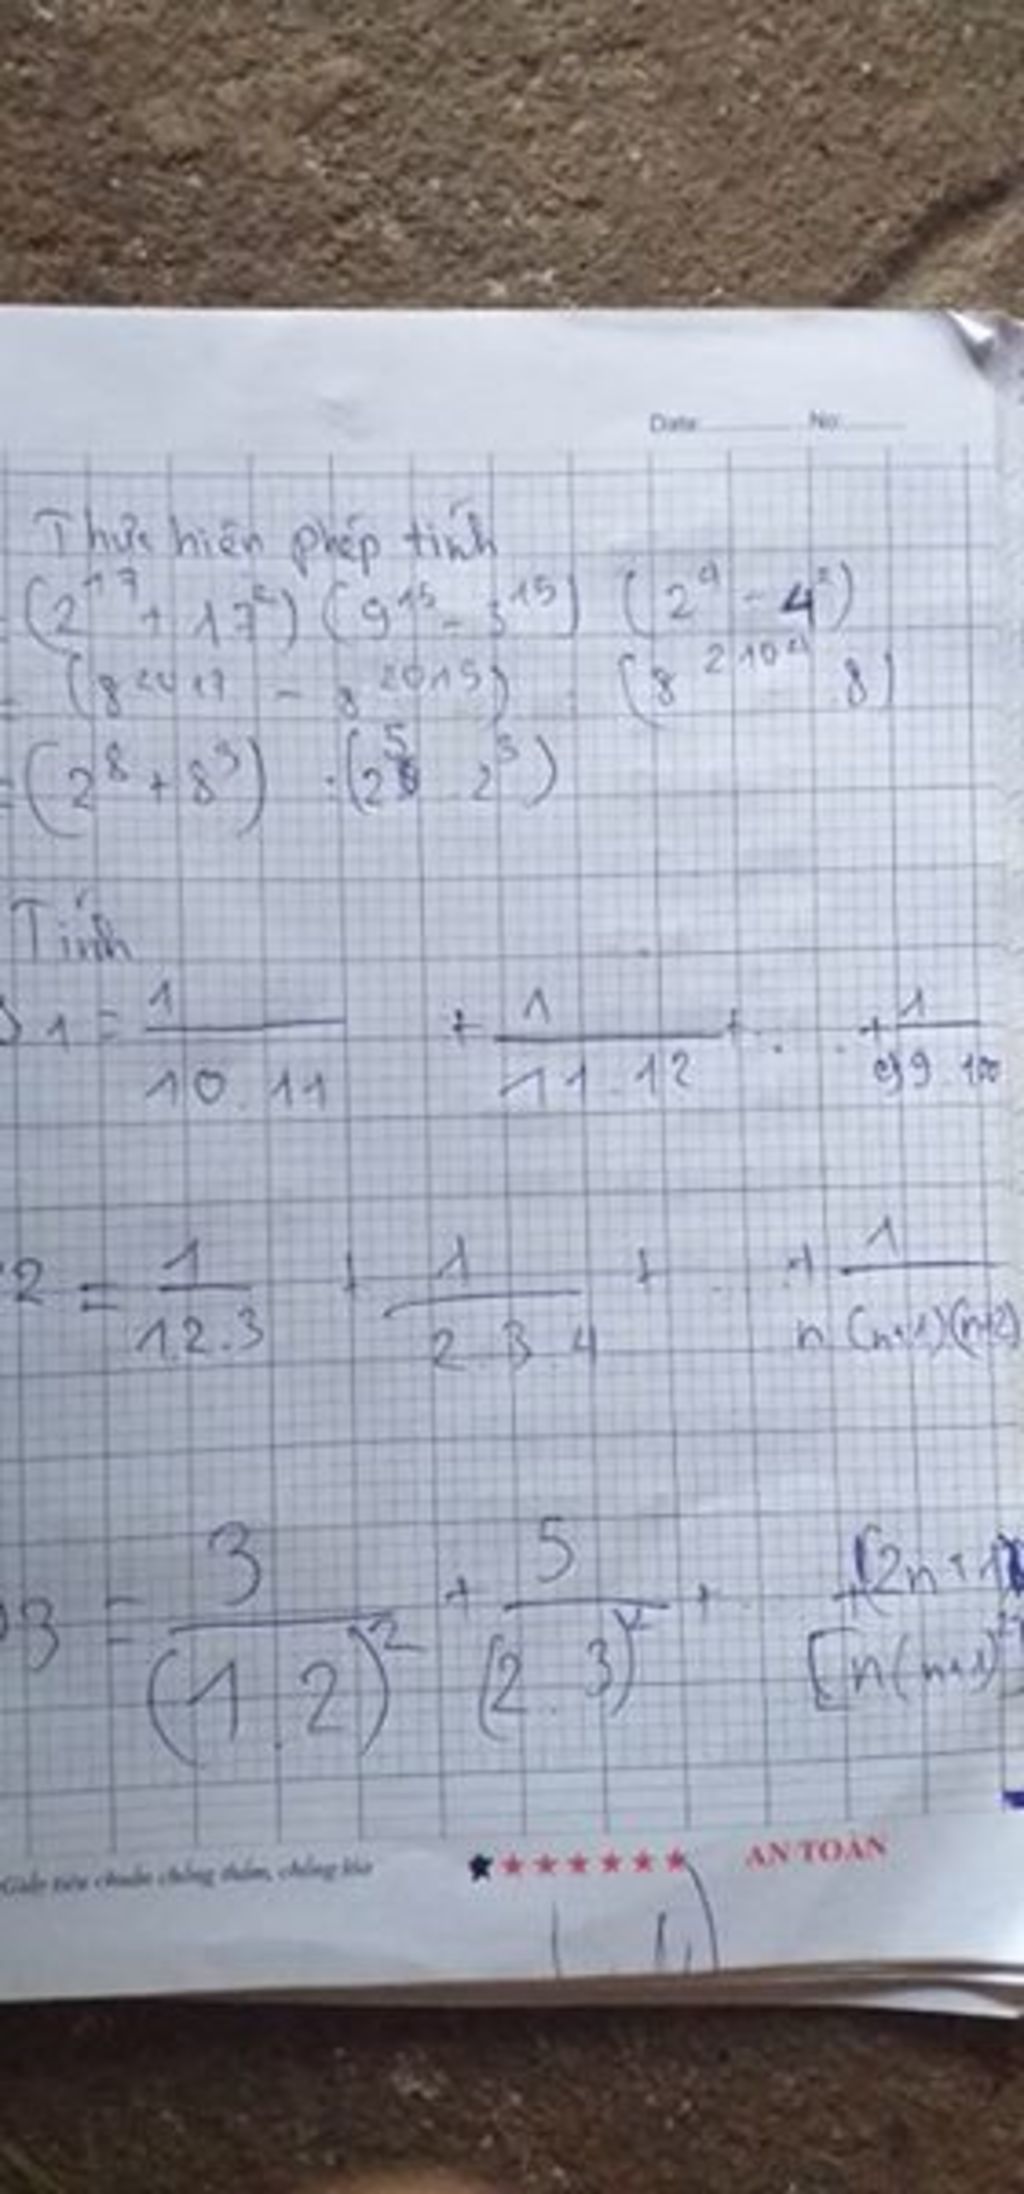 Date: No:
Thực hiện phép tính
= (2^17 + 17^2) (9^15 - 3^15) (2^4 - 4^2)
= (8^2017 - 8^2015) : (8^2104 8)
= (2^8 + 8^3) : (2^5 2^3)
Tính
1 = 1/10.11 + 1/11.12 + . . + 1/99.100
2 = 1/12.3 + 1/2.3.4 + ... + 1/n(n+1)(n+2)
3 = 3/(1.2)^2 + 5/(2.3)^2 + . (2n+1)/[n(n+1)^2]
Giấy tiêu chuẩn chống thấm, chống lóa ★★★★★★★ AN TOÀN